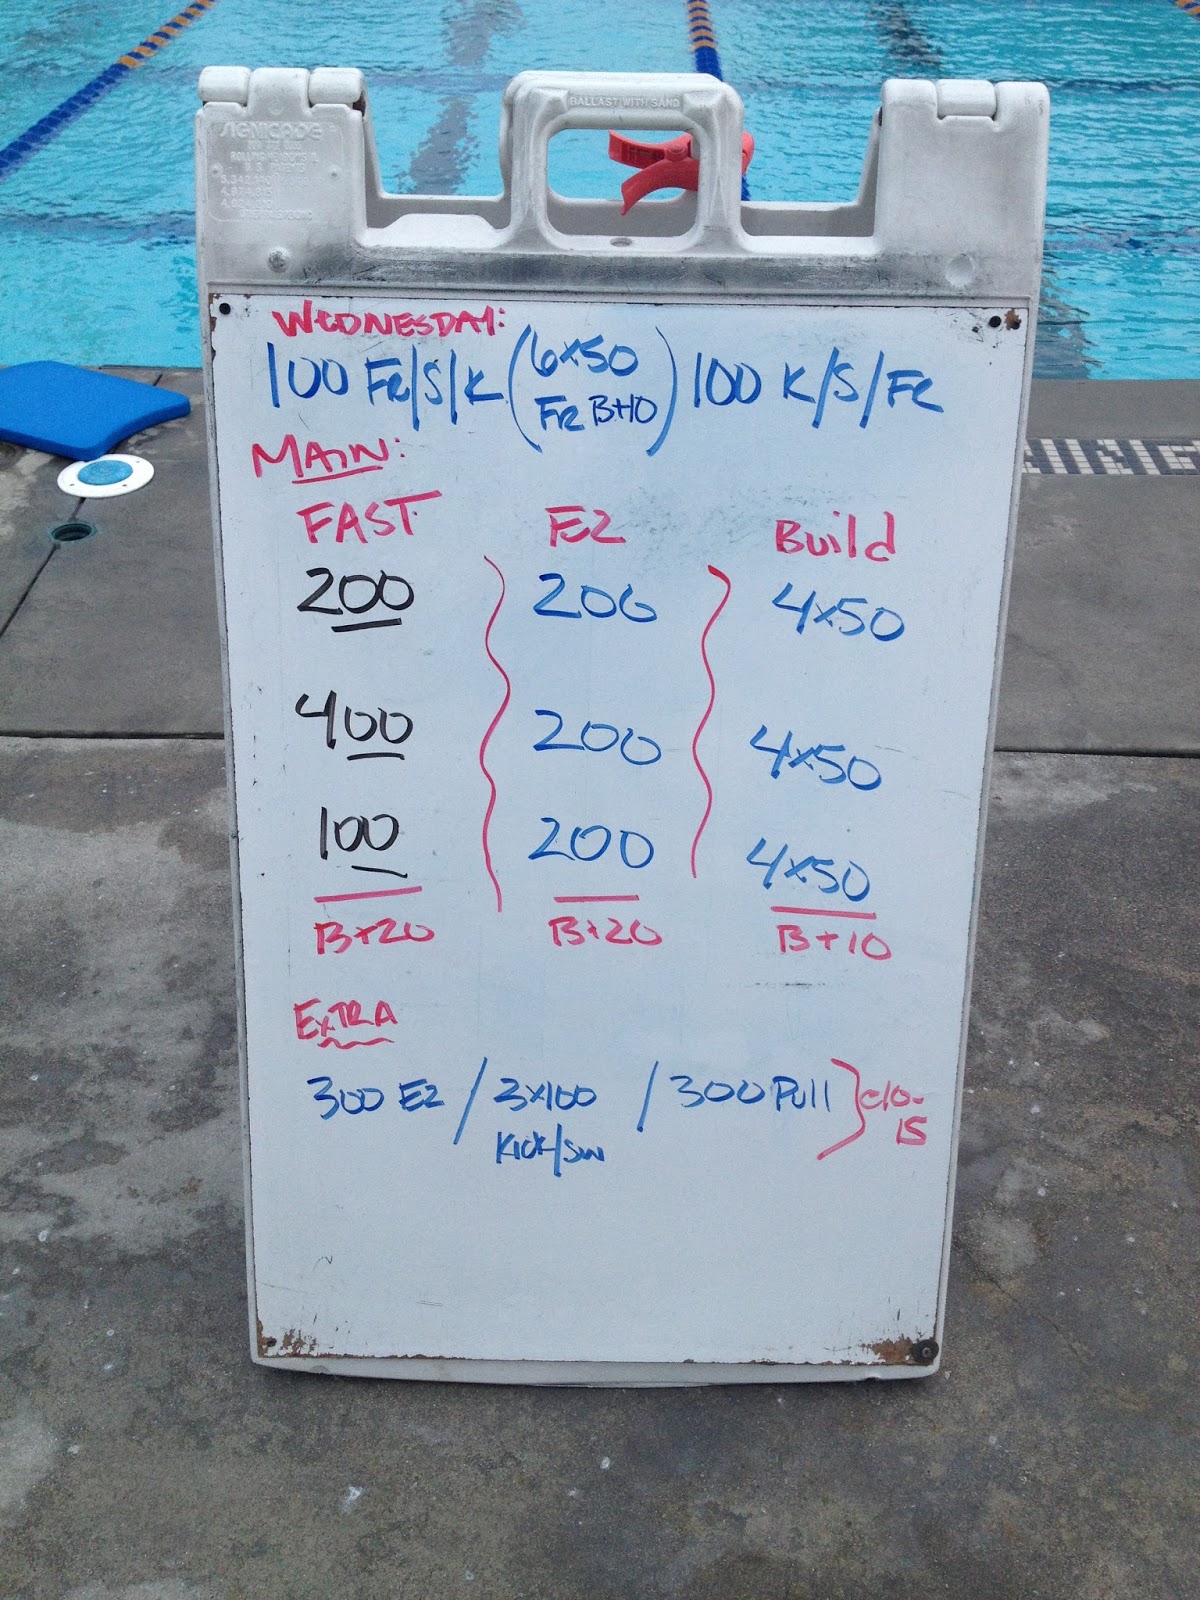 BALLAST WITH SAND
SIGNICADE
WEDNESDAY:
100 FR/S/K (6x50 FR B+10) 100 K/S/FR
MAIN:
FAST EZ Build
200 200 4x50
400 200 4x50
100 200 4x50
B+20 B+20 B+10
EXTRA
300 EZ / 3x100 / 300 Pull } c10-
Kick/sw 15
NING